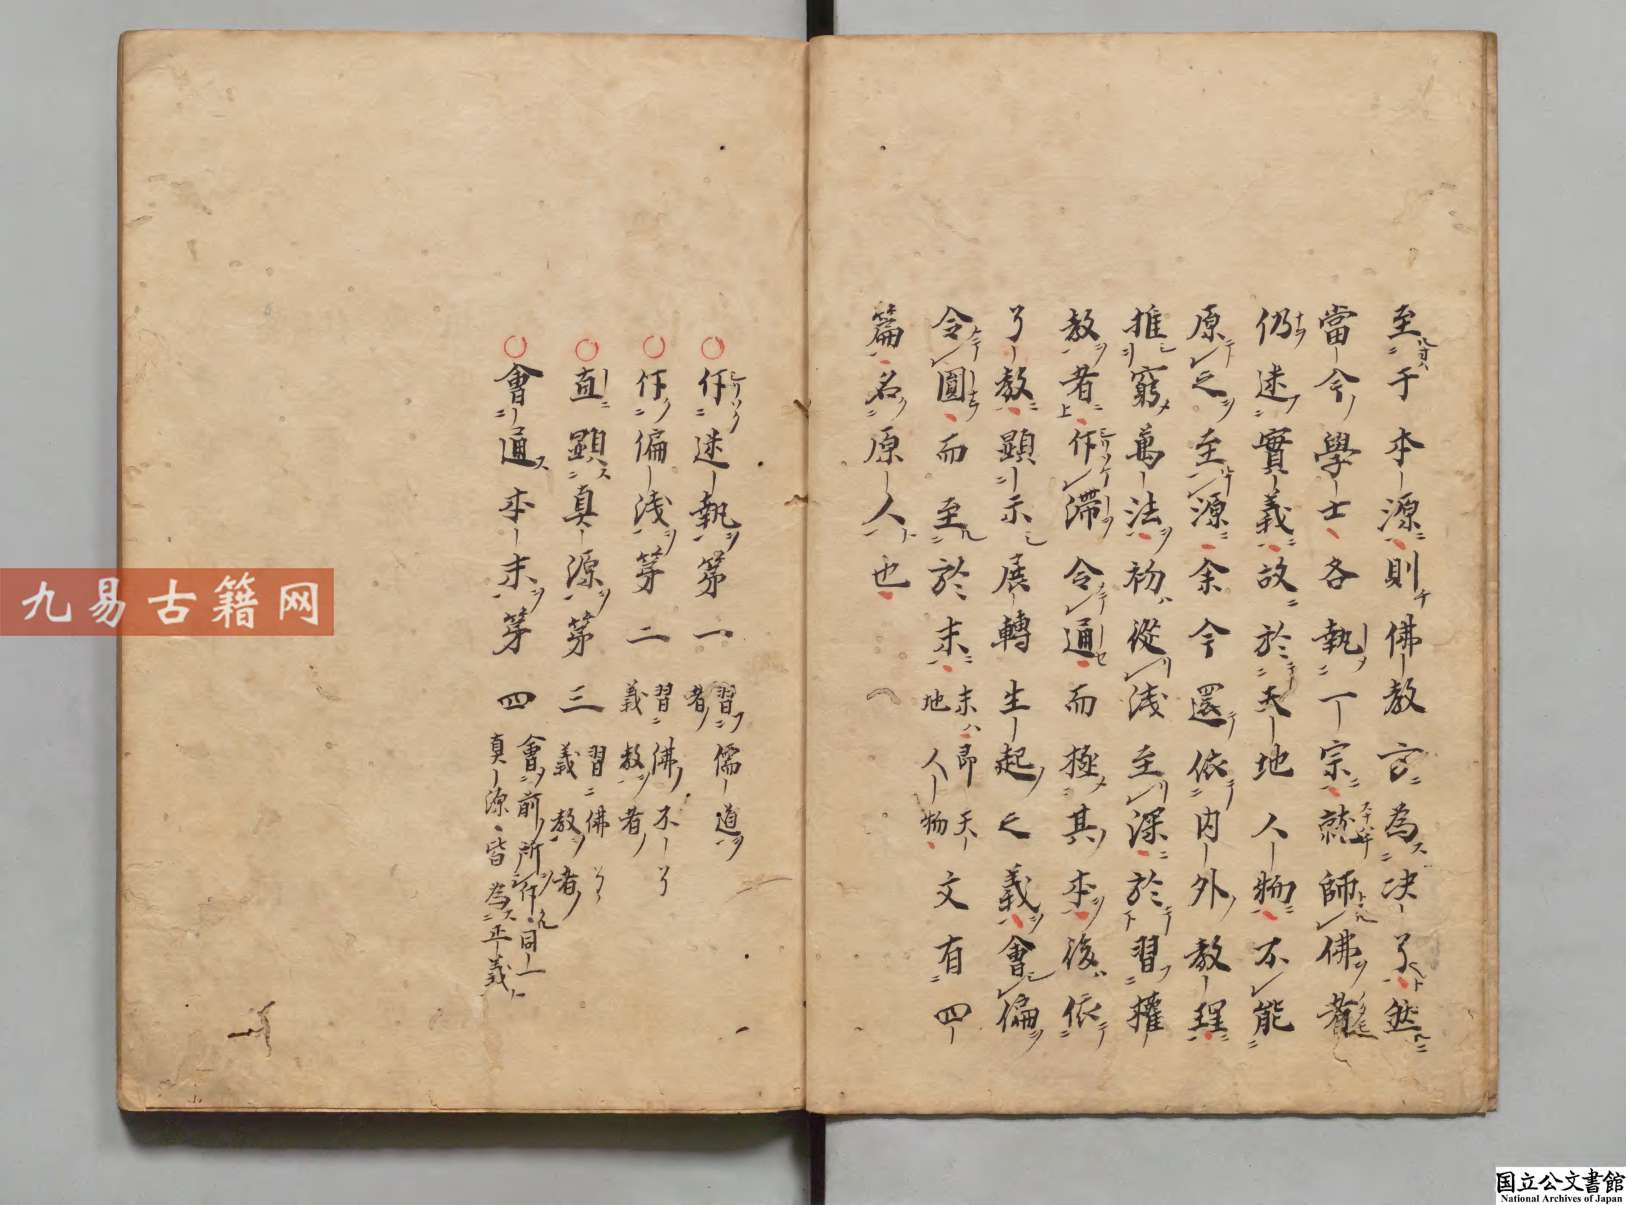 至于本源則佛教方為決了然
當今學士各執一宗就師佛者
仍迷實義故於天地人物不能
原之至源余今還依內外教理
推窮萬法初從浅至深於習權
教者斥滯令通而極其本後依
了教顯示展轉生起之義會偏
令圓而至於末末即天地人物文有四
篇名原人也
斥迷執第一習儒道者
斥偏浅第二習佛不了義教者
直顯真源第三習佛了義教者
會通本末第四會前所斥同一真源皆為正義
九易古籍网
国立公文書館
National Archives of Japan